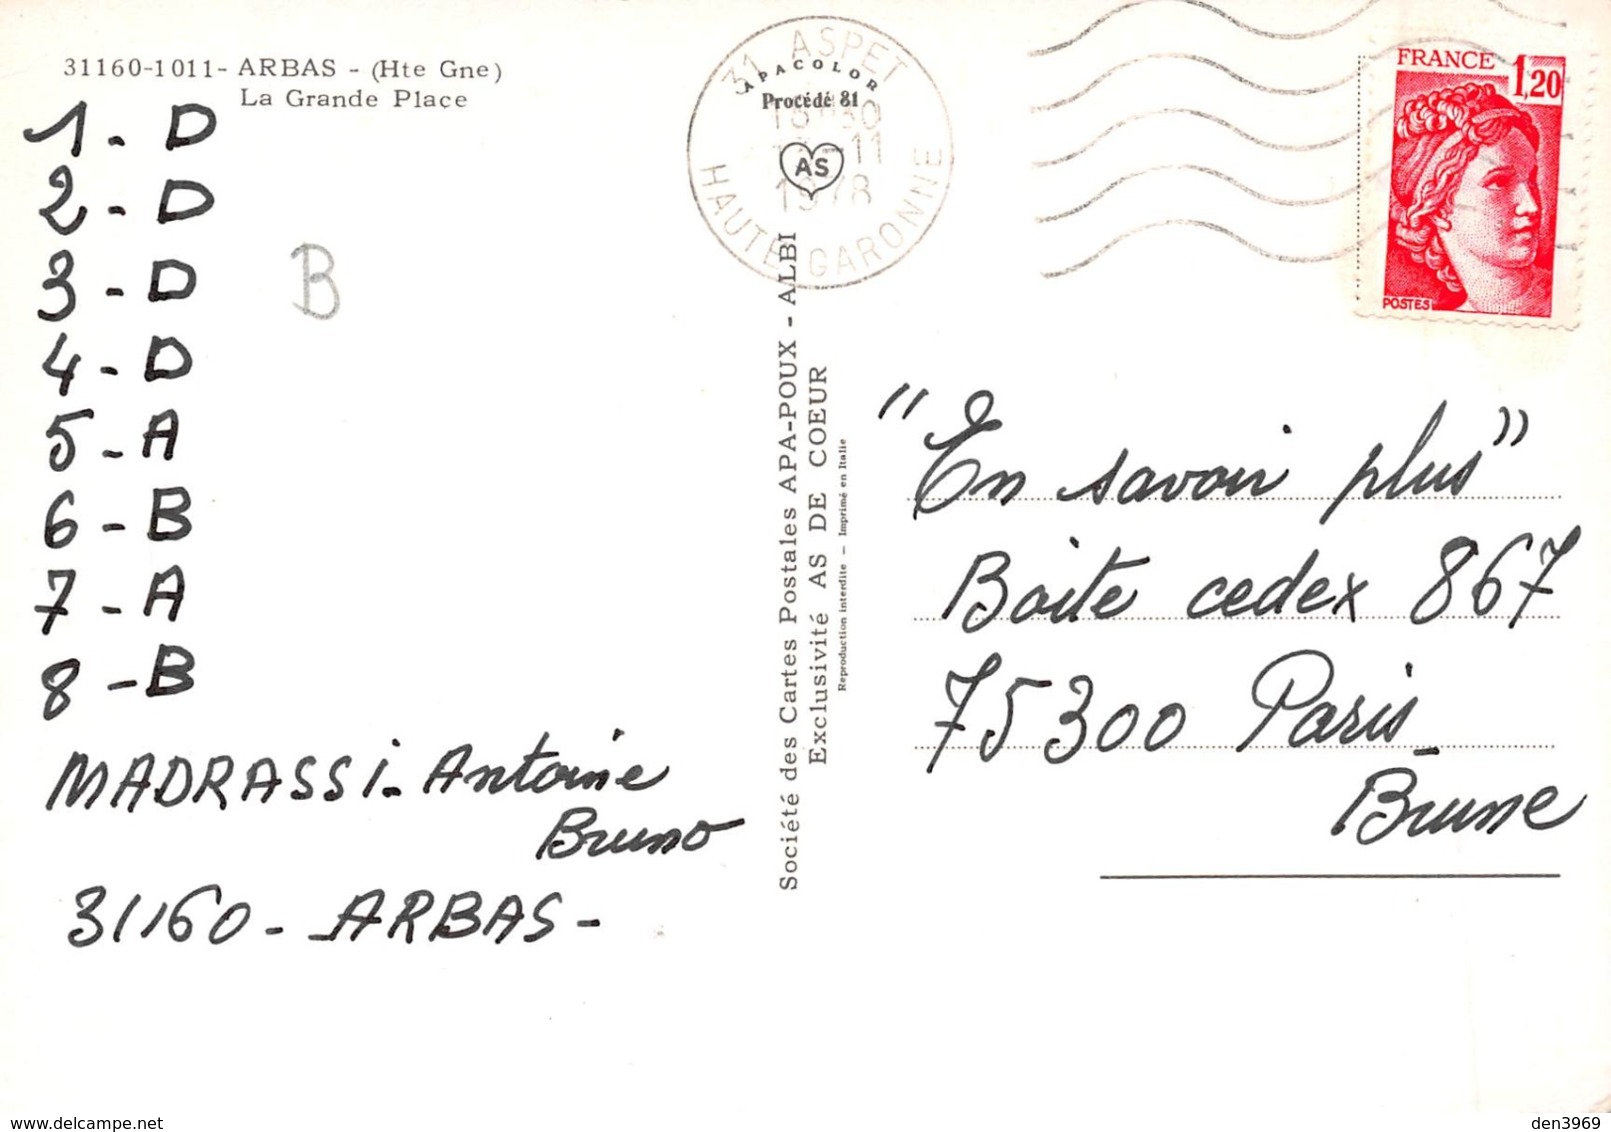 31160-1011- ARBAS - (Hte Gne)
La Grande Place
1 - D
2 - D
3 - D
4 - D
5 - A
6 - B
7 - A
8 - B
B
MADRASSI - Antoine
Bruno
31160 - ARBAS -
31 ASPET
HAUTE GARONNE
-11
1978
APACOLOR
Procédé 81
AS
Société des Cartes Postales APA-POUX - ALBI
Exclusivité AS DE COEUR
Reproduction interdite – Imprimé en Italie
FRANCE 1,20
POSTES
"En savoir plus"
Boite cedex 867
75300 Paris -
Brune
delcampe.net
den3969